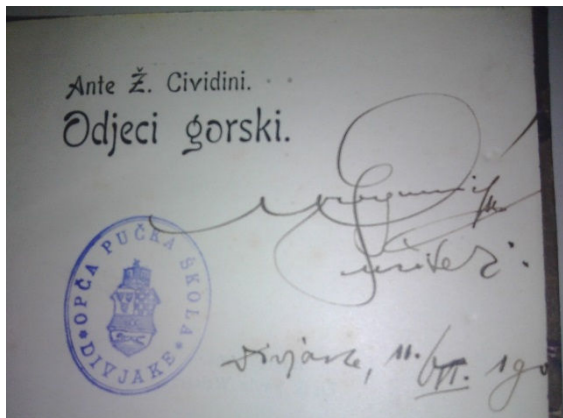 Ante Ž. Cividini.
Odjeci gorski.
učitelj.
OPĆA PUČKA ŠKOLA
DIVJAKE
Divjake, 11./VII. 190